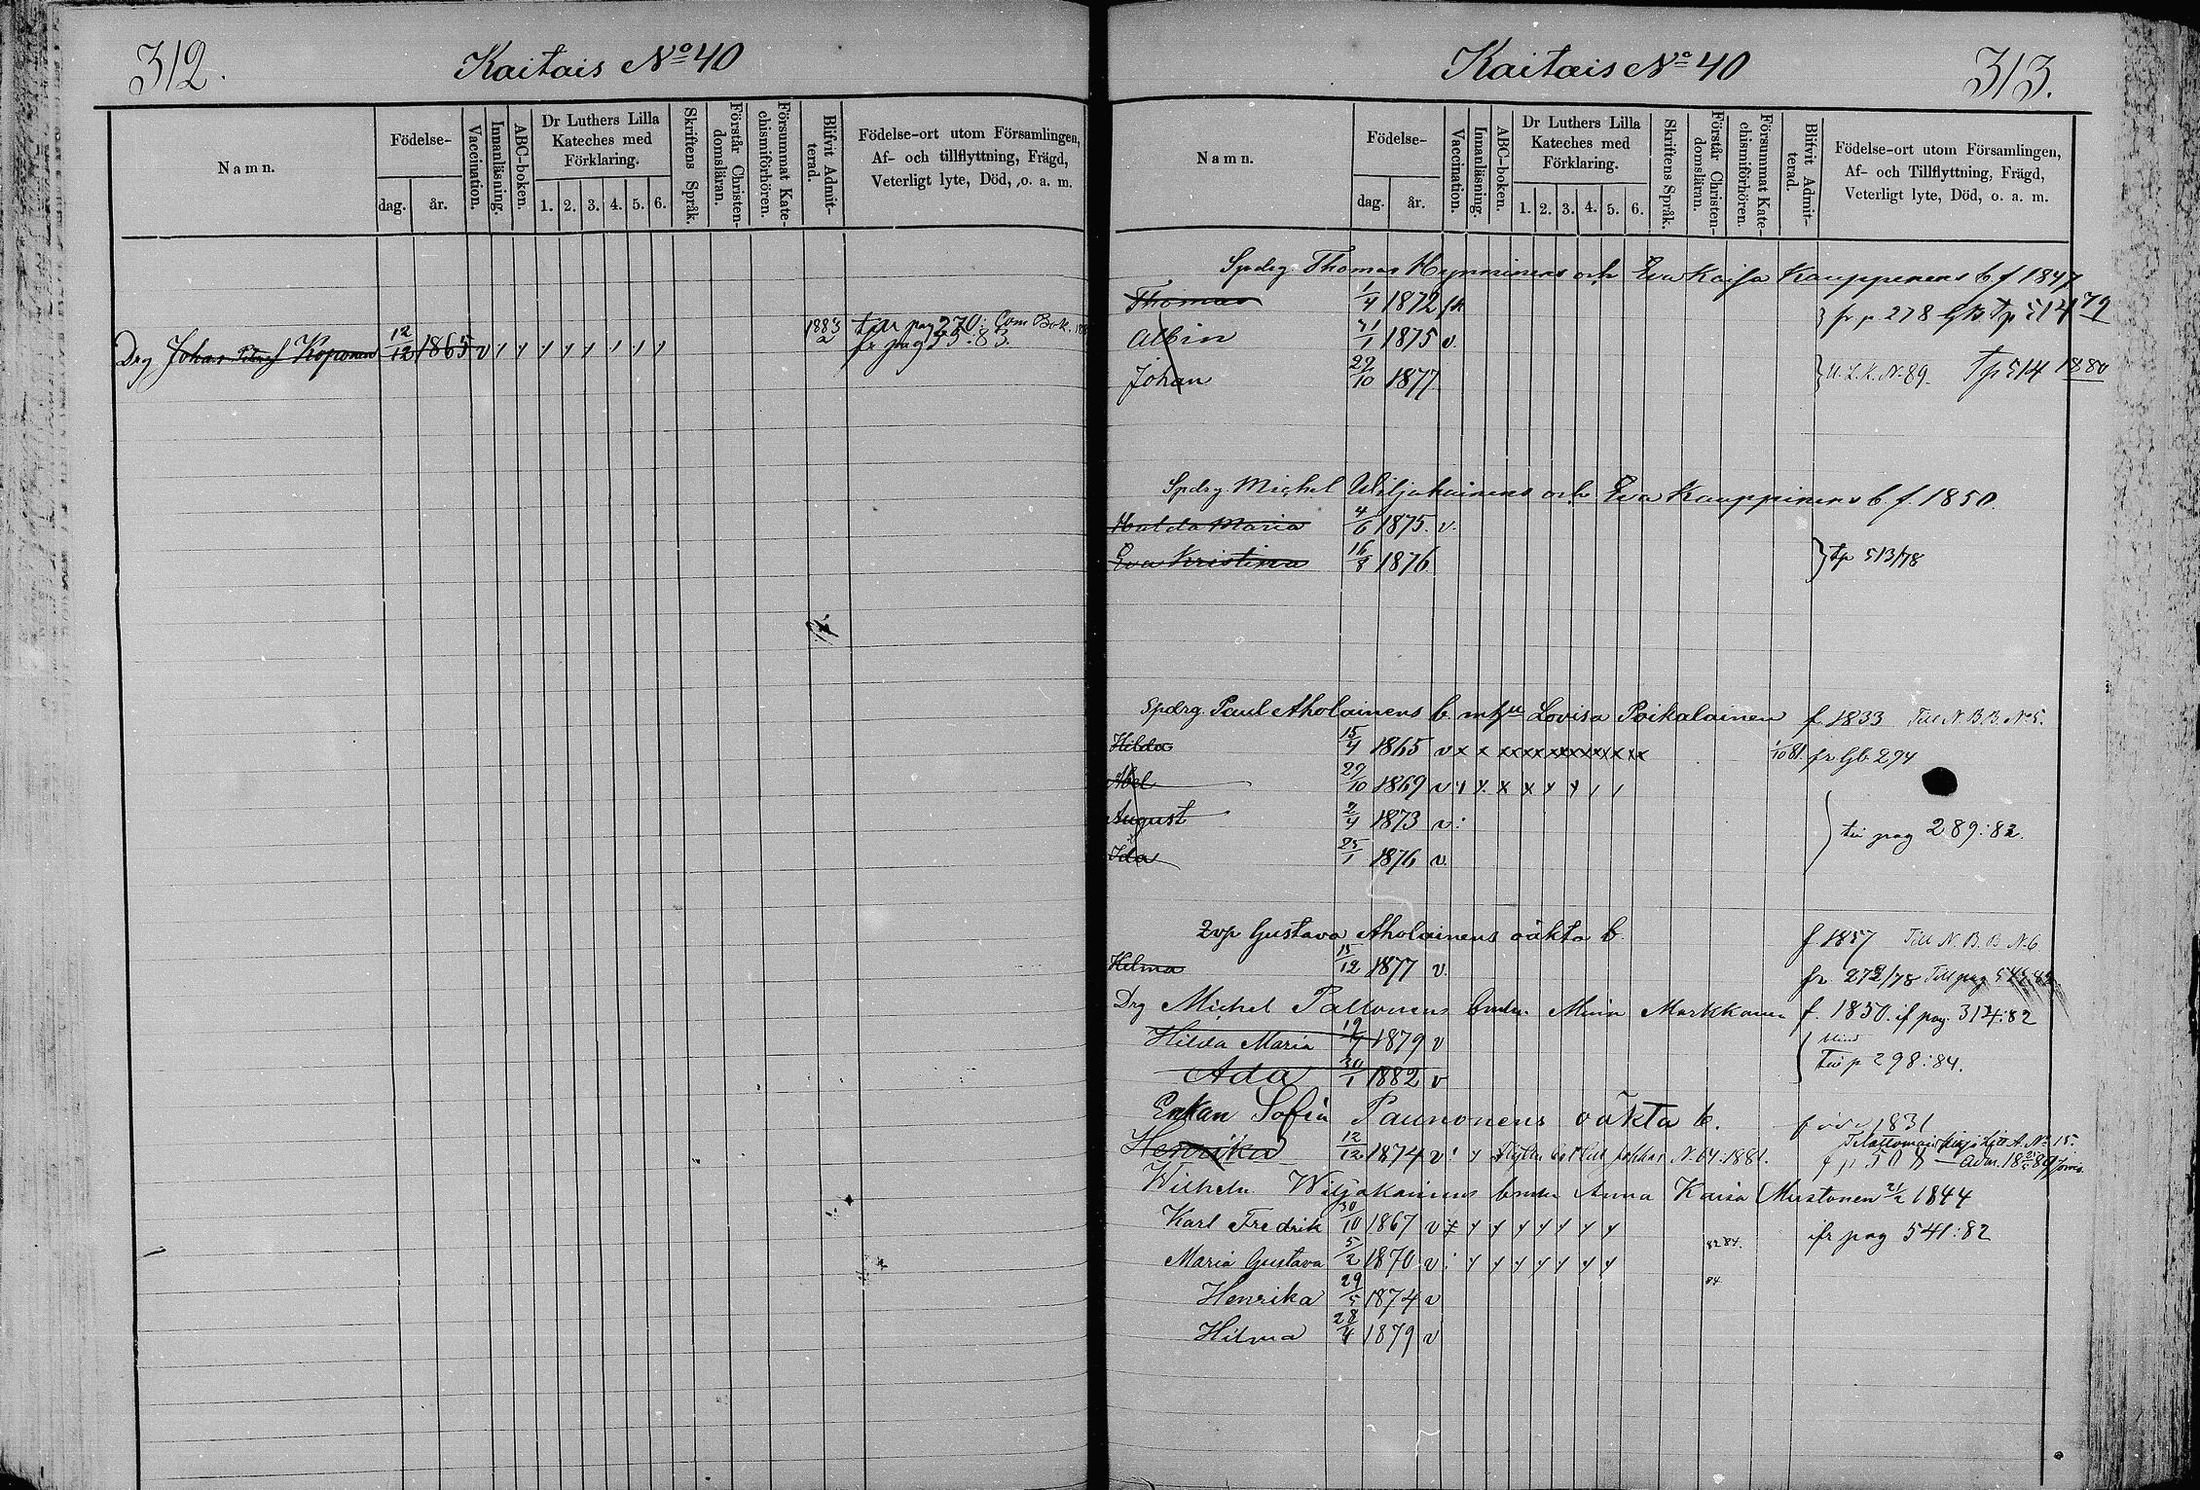 312.
Kaitais No 40
Namn.
Födelse-
dag.
år.
Vaccination.
Innanläsning.
ABC-boken.
Dr Luthers Lilla
Kateches med
Förklaring.
1. 2. 3. 4. 5. 6.
Skriftens Språk.
Förstår Christen-
domsläran.
Försummat Kate-
chismiförhören.
Blifvit Admit-
terad.
Födelse-ort utom Församlingen,
Af- och tillflyttning, Frägd,
Veterligt lyte, Död, o. a. m.
1883 till pag 270: Com Bok.
Drg Johan Koponen 12/12 1865 v fr pag 55.83.
Kaitais No 40
313.
Namn.
Födelse-
dag.
år.
Vaccination.
Innanläsning.
ABC-boken.
Dr Luthers Lilla
Kateches med
Förklaring.
1. 2. 3. 4. 5. 6.
Skriftens Språk.
Förstår Christen-
domsläran.
Försummat Kate-
chismiförhören.
Blifvit Admit-
terad.
Födelse-ort utom Församlingen,
Af- och Tillflyttning, Frägd,
Veterligt lyte, Död, o. a. m.
Spdrg. Thomas Hynninens och Eva Kaisa Kauppinens b f 1847
Thomas 1/4 1872 fr p 278 Tp 514 79
Albin 21/1 1875 v.
Johan 29/10 1877 N. 89. Tp 514 1880
Spdrg. Michel Wiljakainens och Eva Kauppinens b. f. 1850.
Hulda Maria 4/6 1875. v.
Eva Kristina 16/8 1876 tp 513/78
Spdrg. Paul Aholainens b m h Lovisa Poikalainen f. 1833 Till N. B. B. No 5.
Hilda 15/4 1865 v x x x x x x x x x x 1/10 81. fr Gb 294
Abel 29/10 1869 v x x x x x x
August 2/4 1873 v.
Ida 25/1 1876 v. till pag 289:82.
Gustava Aholainens oäkta b. f 1857 Till N. B. B N. 6
Hilma 15/12 1877 v. fr 272/78 Till pag
Drg Michel Paltonens b m h Minn Markkanen f. 1850. if pag. 314:82
Hilda Maria 19/7 1879 v blind
Ada 30/1 1882 v till p 298:84.
Enkan Sofia Paunonens oäkta b. 1831
Henrika 12/12 1874 v N. 64. 1881.
Wilhelm Wiljakainens b m h Anna Kaisa Mustonen 21/2 1844
Karl Fredrik 30/10 1867 v fr pag 541:82
Maria Gustava 5/2 1870 v 82 84.
Henrika 29/5 1874 v 84
Hilma 28/4 1879 v